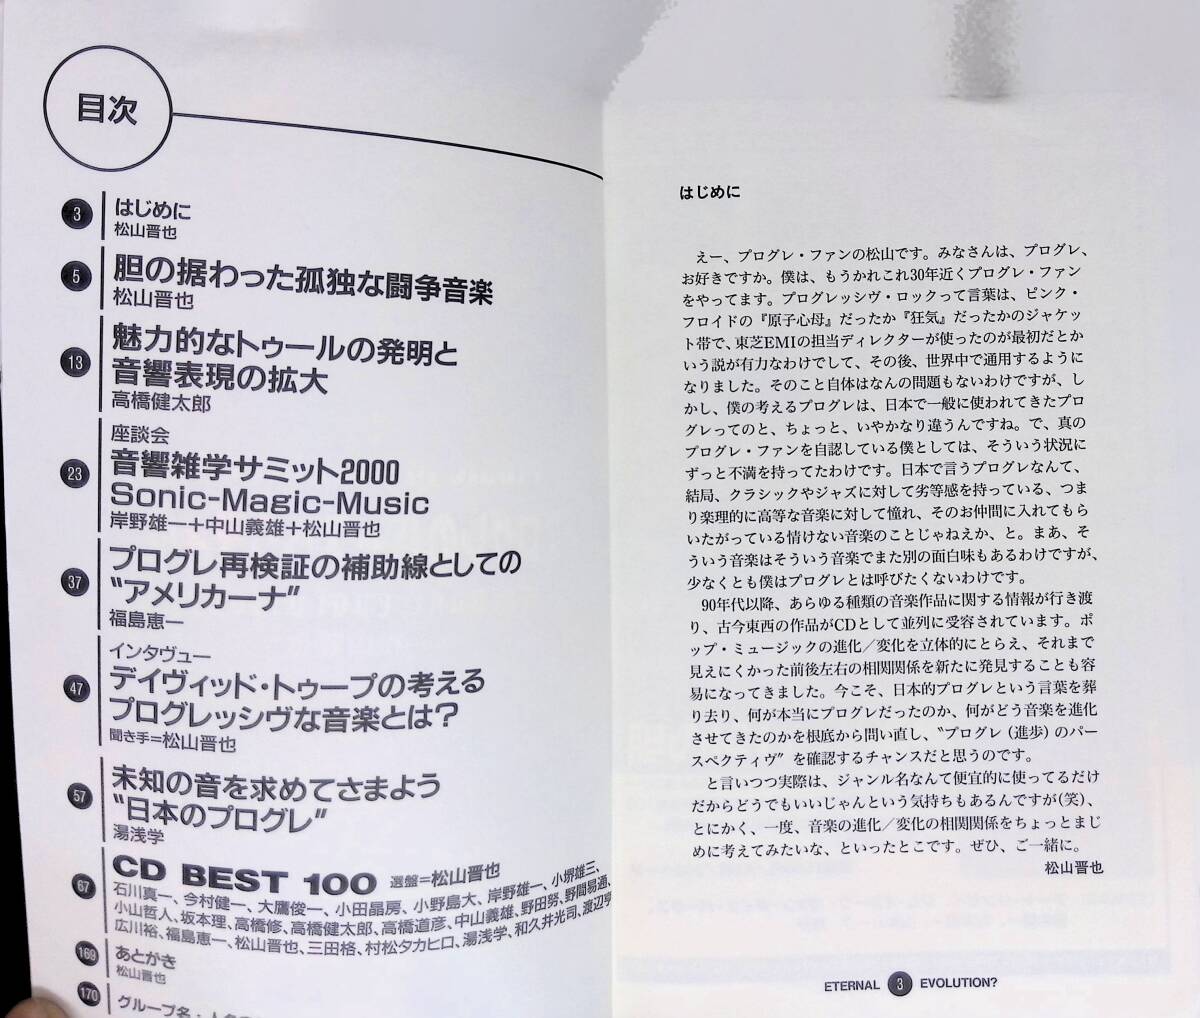 目次
3
はじめに
松山晋也
5
胆の据わった孤独な闘争音楽
松山晋也
13
魅力的なトゥールの発明と
音響表現の拡大
高橋健太郎
座談会
23
音響雑学サミット2000
Sonic-Magic-Music
岸野雄一＋中山義雄＋松山晋也
プログレ再検証の補助線としての
37
“アメリカーナ”
福島恵一
インタヴュー
47
デイヴィッド・トゥープの考える
プログレッシヴな音楽とは?
聞き手=松山晋也
未知の音を求めてさまよう
57
“日本のプログレ”
湯浅学
67
CD BEST 100 選盤=松山晋也
石川真一、今村健一、大鷹俊一、小田晶房、小野島大、岸野雄一、小堺雄三、
小山哲人、坂本理、高橋修、高橋健太郎、高橋道彦、中山義雄、野田努、野間易通、
広川裕、福島恵一、松山晋也、三田格、村松タカヒロ、湯浅学、和久井光司、渡辺亨
169
あとがき
松山晋也
170
グループ名・人名
はじめに
えー、プログレ・ファンの松山です。みなさんは、プログレ、
お好きですか。僕は、もうかれこれ30年近くプログレ・ファン
をやってます。プログレッシヴ・ロックって言葉は、ピンク・
フロイドの『原子心母』だったか『狂気』だったかのジャケッ
ト帯で、東芝EMIの担当ディレクターが使ったのが最初だとか
いう説が有力なわけでして、その後、世界中で通用するように
なりました。そのこと自体はなんの問題もないわけですが、し
かし、僕の考えるプログレは、日本で一般に使われてきたプロ
グレってのと、ちょっと、いやかなり違うんですね。で、真の
プログレ・ファンを自認している僕としては、そういう状況に
ずっと不満を持ってたわけです。日本で言うプログレなんて、
結局、クラシックやジャズに対して劣等感を持っている、つま
り楽理的に高等な音楽に対して憧れ、そのお仲間に入れてもら
いたがっている情けない音楽のことじゃねえか、と。まあ、そ
ういう音楽はそういう音楽でまた別の面白味もあるわけですが、
少なくとも僕はプログレとは呼びたくないわけです。
90年代以降、あらゆる種類の音楽作品に関する情報が行き渡
り、古今東西の作品がCDとして並列に受容されています。ポ
ップ・ミュージックの進化／変化を立体的にとらえ、それまで
見えにくかった前後左右の相関関係を新たに発見することも容
易になってきました。今こそ、日本的プログレという言葉を葬
り去り、何が本当にプログレだったのか、何がどう音楽を進化
させてきたのかを根底から問い直し、“プログレ（進歩）のパー
スペクティヴ”を確認するチャンスだと思うのです。
と言いつつ実際は、ジャンル名なんて便宜的に使ってるだけ
だからどうでもいいじゃんという気持ちもあるんですが(笑)、
とにかく、一度、音楽の進化／変化の相関関係をちょっとまじ
めに考えてみたいな、といったとこです。ぜひ、ご一緒に。
松山晋也
ETERNAL 3 EVOLUTION?